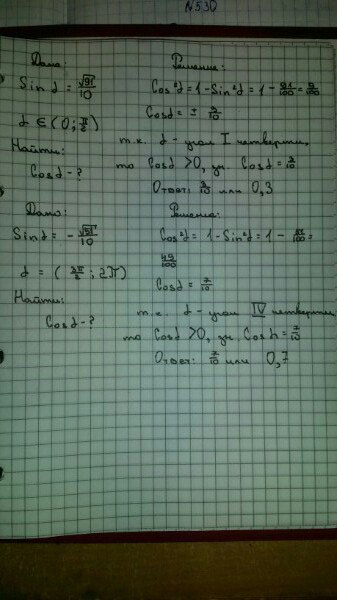 N530
Дано:
Sin α = √91/10
α ∈ (0; π/2)
Найти:
Cos α - ?
Решение:
Cos²α = 1 - Sin²α = 1 - 91/100 = 9/100
Cos α = ± 3/10
т.к. α - угол I четверти,
то Cos α > 0, зн. Cos α = 3/10
Ответ: 3/10 или 0,3
Дано:
Sin α = - √51/10
α = (3π/2; 2π)
Найти:
Cos α - ?
Решение:
Cos²α = 1 - Sin²α = 1 - 51/100 =
49/100
Cos α = 7/10
т.к. α - угол IV четверти
то Cos α > 0, зн. Cos α = 7/10
Ответ: 7/10 или 0,7